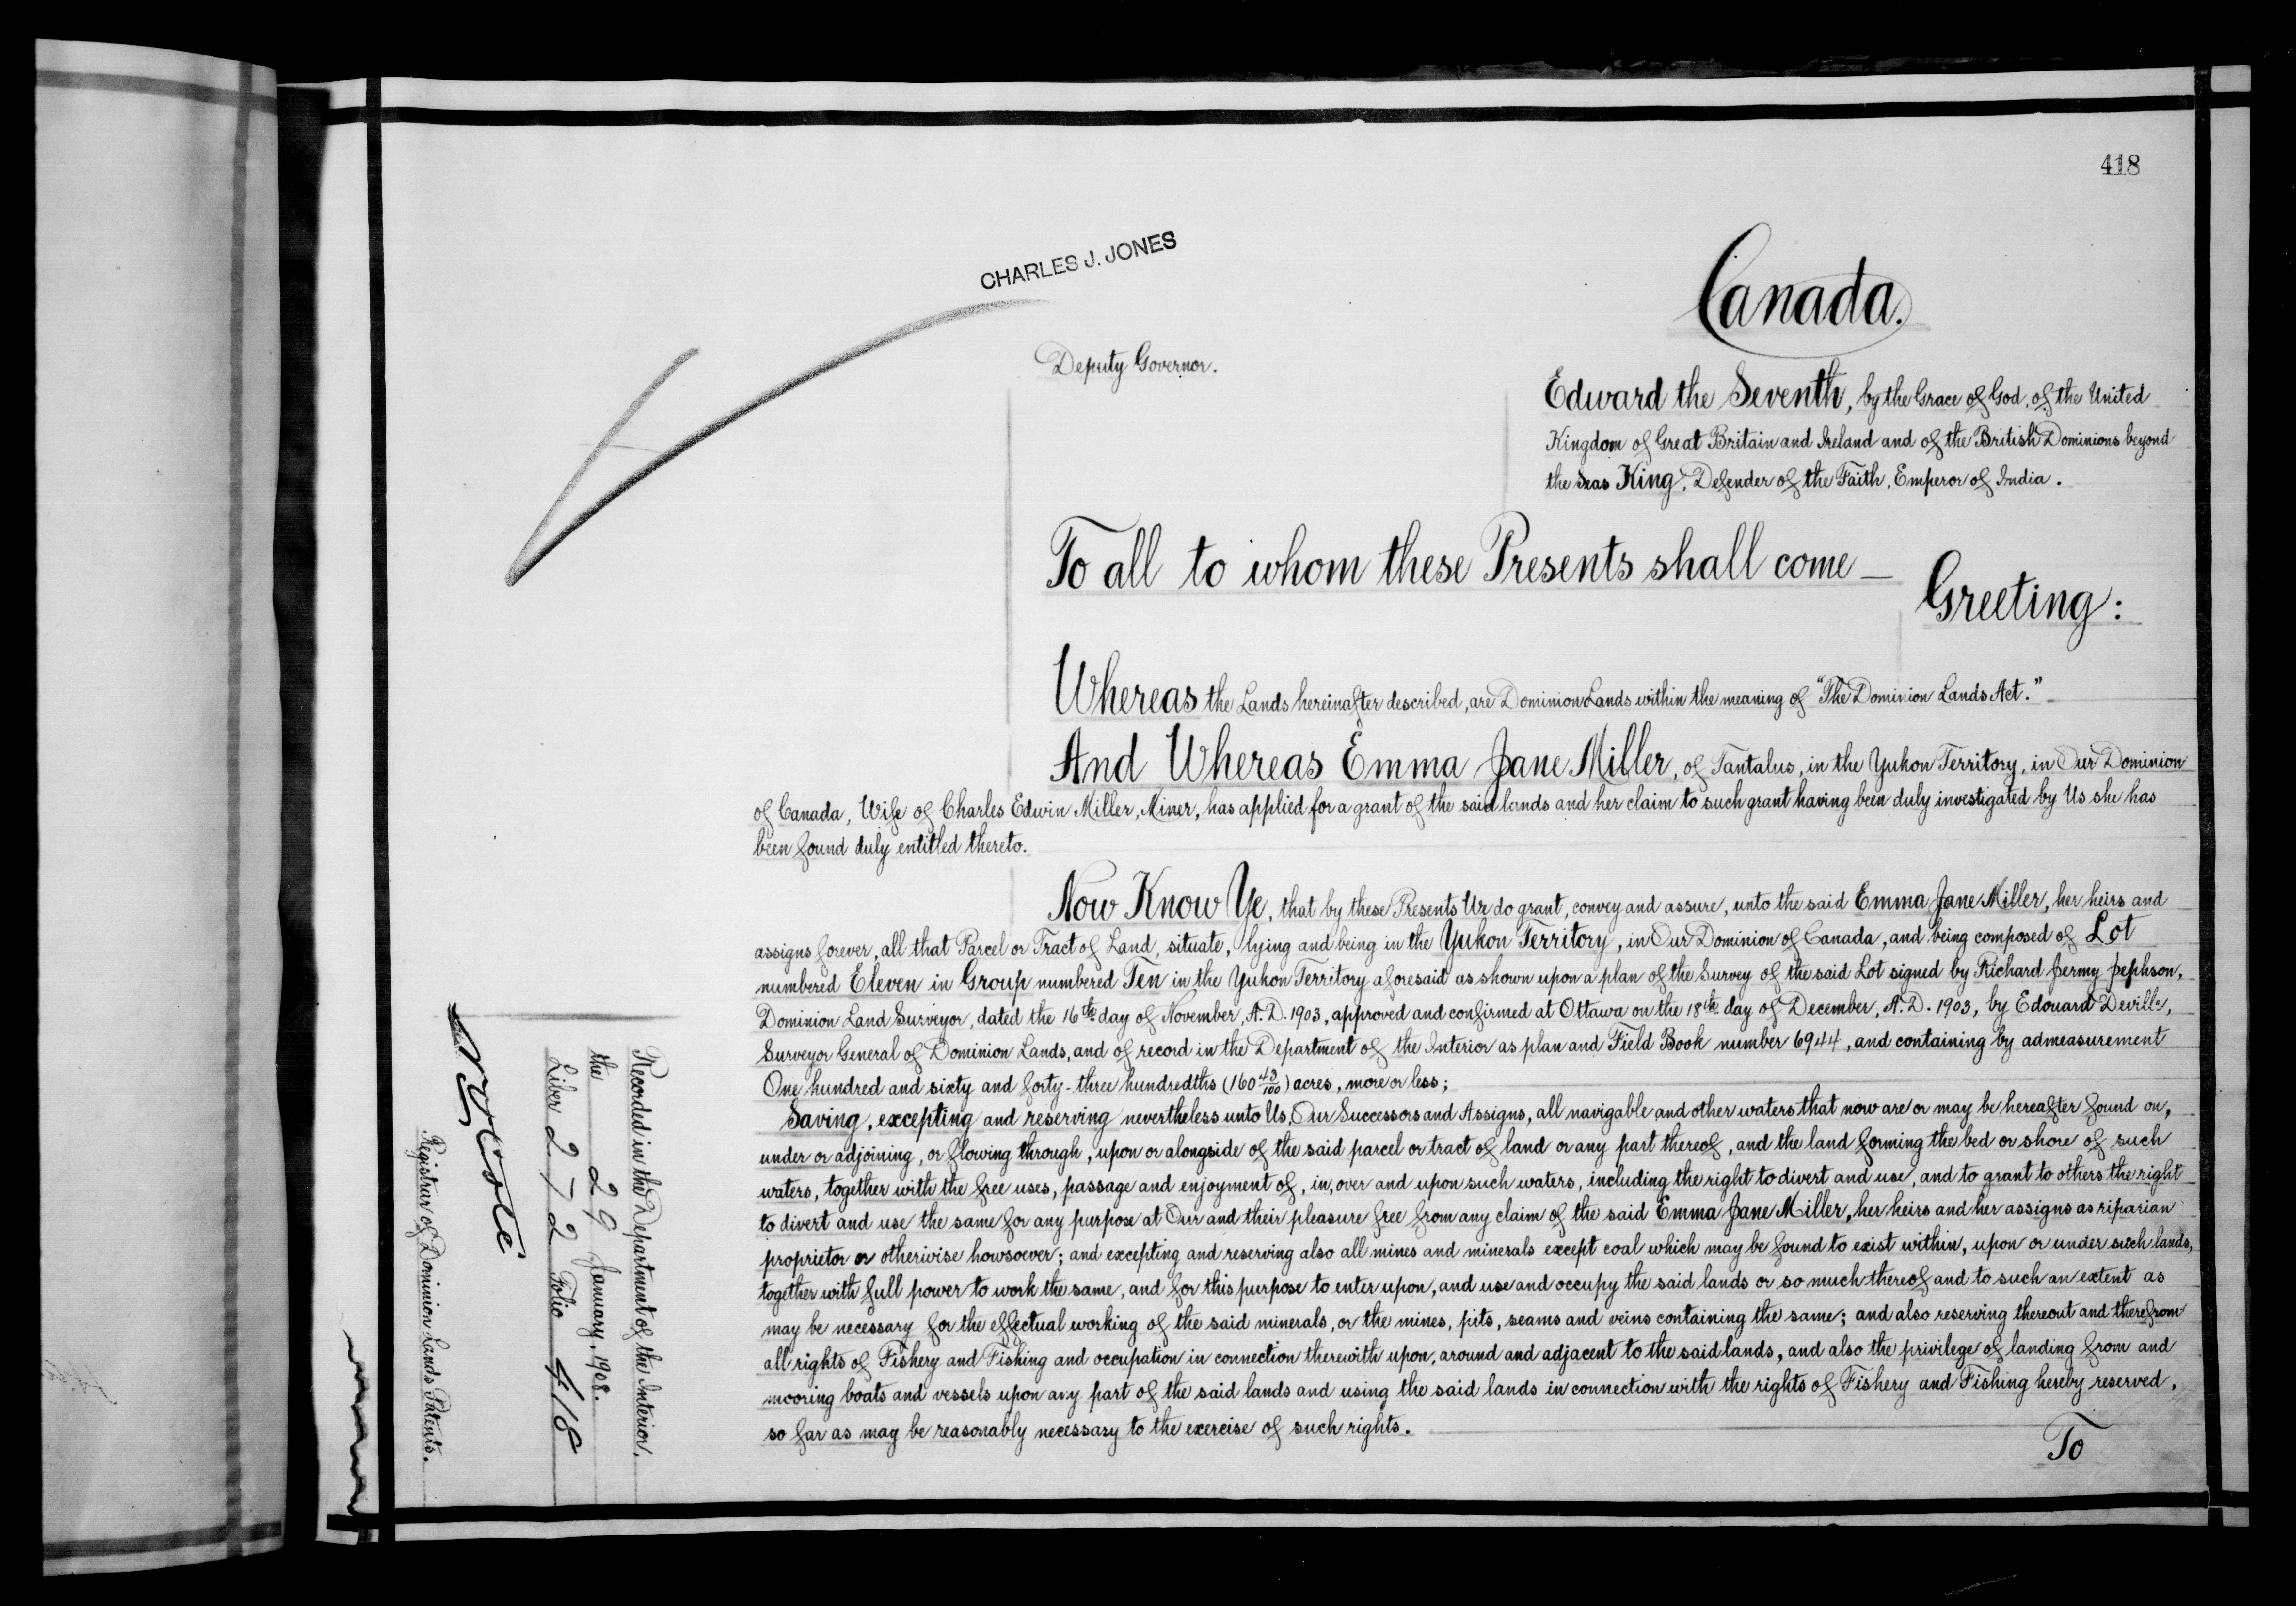 418
CHARLES J. JONES
Canada.
Deputy Governor.
Edward the Seventh, by the Grace of God, of the United
Kingdom of Great Britain and Ireland and of the British Dominions beyond
the Seas King, Defender of the Faith, Emperor of India.
To all to whom these Presents shall come —
Greeting:
Whereas the Lands hereinafter described, are Dominion Lands within the meaning of "The Dominion Lands Act."
And Whereas Emma Jane Miller, of Tantalus, in the Yukon Territory, in Our Dominion
of Canada, Wife of Charles Edwin Miller, Miner, has applied for a grant of the said lands and her claim to such grant having been duly investigated by Us she has
been found duly entitled thereto.
Now Know Ye, that by these Presents We do grant, convey and assure, unto the said Emma Jane Miller, her heirs and
assigns forever, all that Parcel or Tract of Land, situate, lying and being in the Yukon Territory, in Our Dominion of Canada, and being composed of Lot
numbered Eleven in Group numbered Ten in the Yukon Territory aforesaid as shown upon a plan of the Survey of the said Lot signed by Richard Jermy Jephson,
Dominion Land Surveyor, dated the 16th day of November, A.D. 1903, approved and confirmed at Ottawa on the 18th day of December, A.D. 1903, by Edouard Deville,
Surveyor General of Dominion Lands, and of record in the Department of the Interior as plan and Field Book number 6944, and containing by admeasurement
One hundred and sixty and forty-three hundredths (160 43/100) acres, more or less;
Saving, excepting and reserving nevertheless unto Us, Our Successors and Assigns, all navigable and other waters that now are or may be hereafter found on,
under or adjoining, or flowing through, upon or alongside of the said parcel or tract of land or any part thereof, and the land forming the bed or shore of such
waters, together with the free uses, passage and enjoyment of, in, over and upon such waters, including the right to divert and use, and to grant to others the right
to divert and use the same for any purpose at Our and their pleasure free from any claim of the said Emma Jane Miller, her heirs and her assigns as riparian
proprietor or otherwise howsoever; and excepting and reserving also all mines and minerals except coal which may be found to exist within, upon or under such lands,
together with full power to work the same, and for this purpose to enter upon, and use and occupy the said lands or so much thereof and to such an extent as
may be necessary for the effectual working of the said minerals, or the mines, pits, seams and veins containing the same; and also reserving thereout and therefrom
all rights of Fishery and Fishing and occupation in connection therewith upon, around and adjacent to the said lands, and also the privilege of landing from and
mooring boats and vessels upon any part of the said lands and using the said lands in connection with the rights of Fishery and Fishing hereby reserved,
so far as may be reasonably necessary to the exercise of such rights.
To
Recorded in the Department of the Interior,
the 29 January, 1908.
Liber 272 Folio 418
Registrar of Dominion Lands Patents.